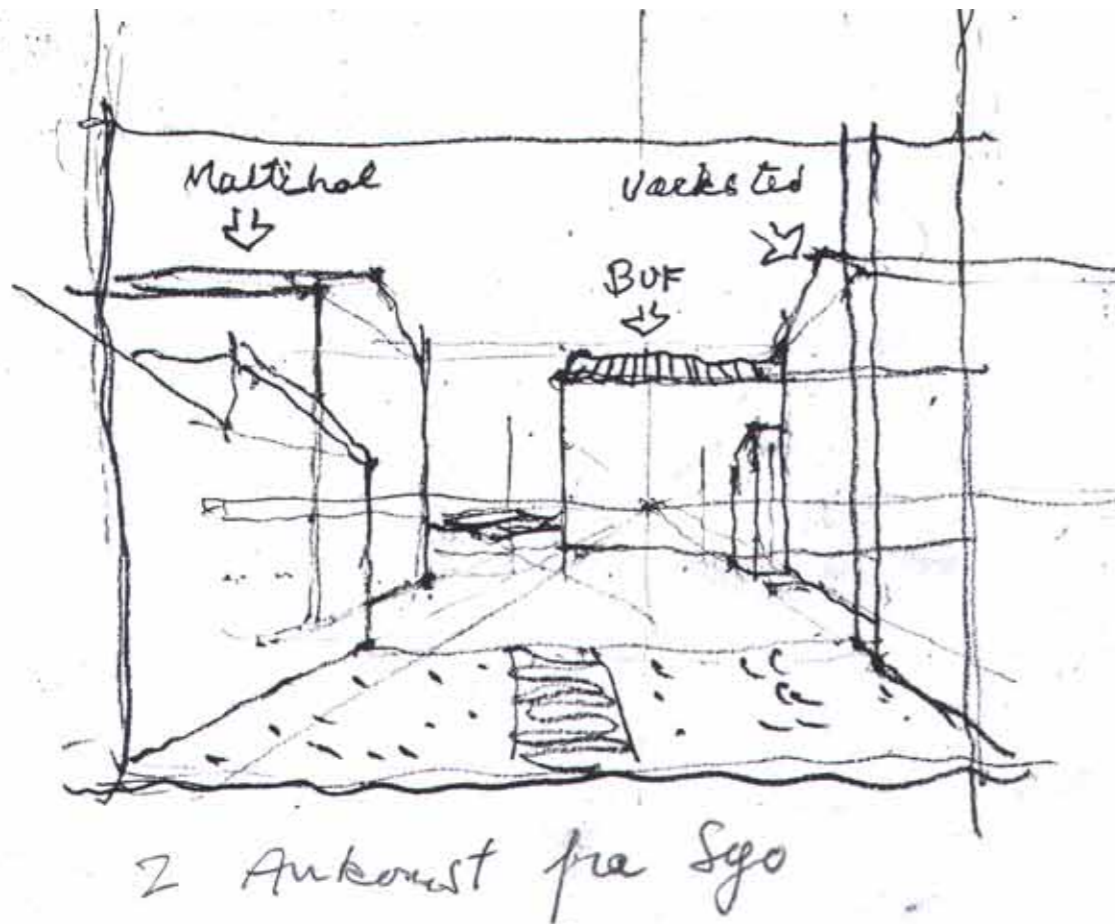 Multihal
Værksted
BUF
2 Ankomst fra Syd